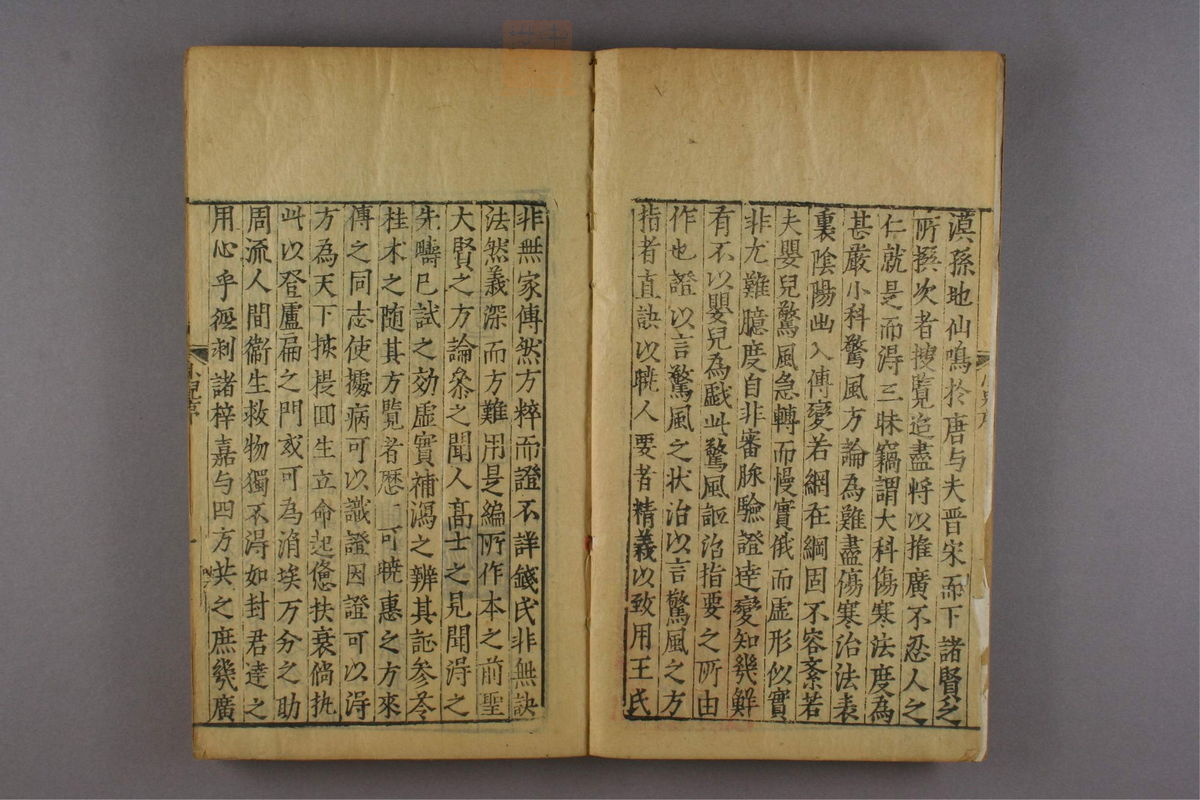 漠孫地仙鳴於唐与夫晋宋而下諸賢之
所撰次者搜覽迨盡将以推廣不忍人之
仁就是而淂三昧竊謂大科傷寒法度為
甚嚴小科驚風方論為難盡傷寒治法表
裏陰陽幽入傳變若網在綱固不容紊若
夫嬰兒驚風急轉而慢實俄而虚形似實
非尤難臆度自非審脉驗證逹變知幾鮮
有不以嬰兒為戯此驚風詎治指要之所由
作也證以言驚風之状治以言驚風之方
指者直訣以曉人要者精義以致用王氏
非無家傳然方粹而證不詳錢氏非無訣
法然義深而方難用是編所作本之前聖
大賢之方論叅之聞人髙士之見聞淂之
先疇已試之効虚實補瀉之辨其証参苓
桂术之随其方覧者歴一可曉惠之方來
傳之同志使據病可以識證因證可以淂
方為天下拯畏回生立命起憊扶衰倘執
此以登盧扁之門或可為涓埃万分之助
周流人間衞生救物獨不淂如封君逹之
用心乎亟刺諸梓嘉与四方共之庶幾廣